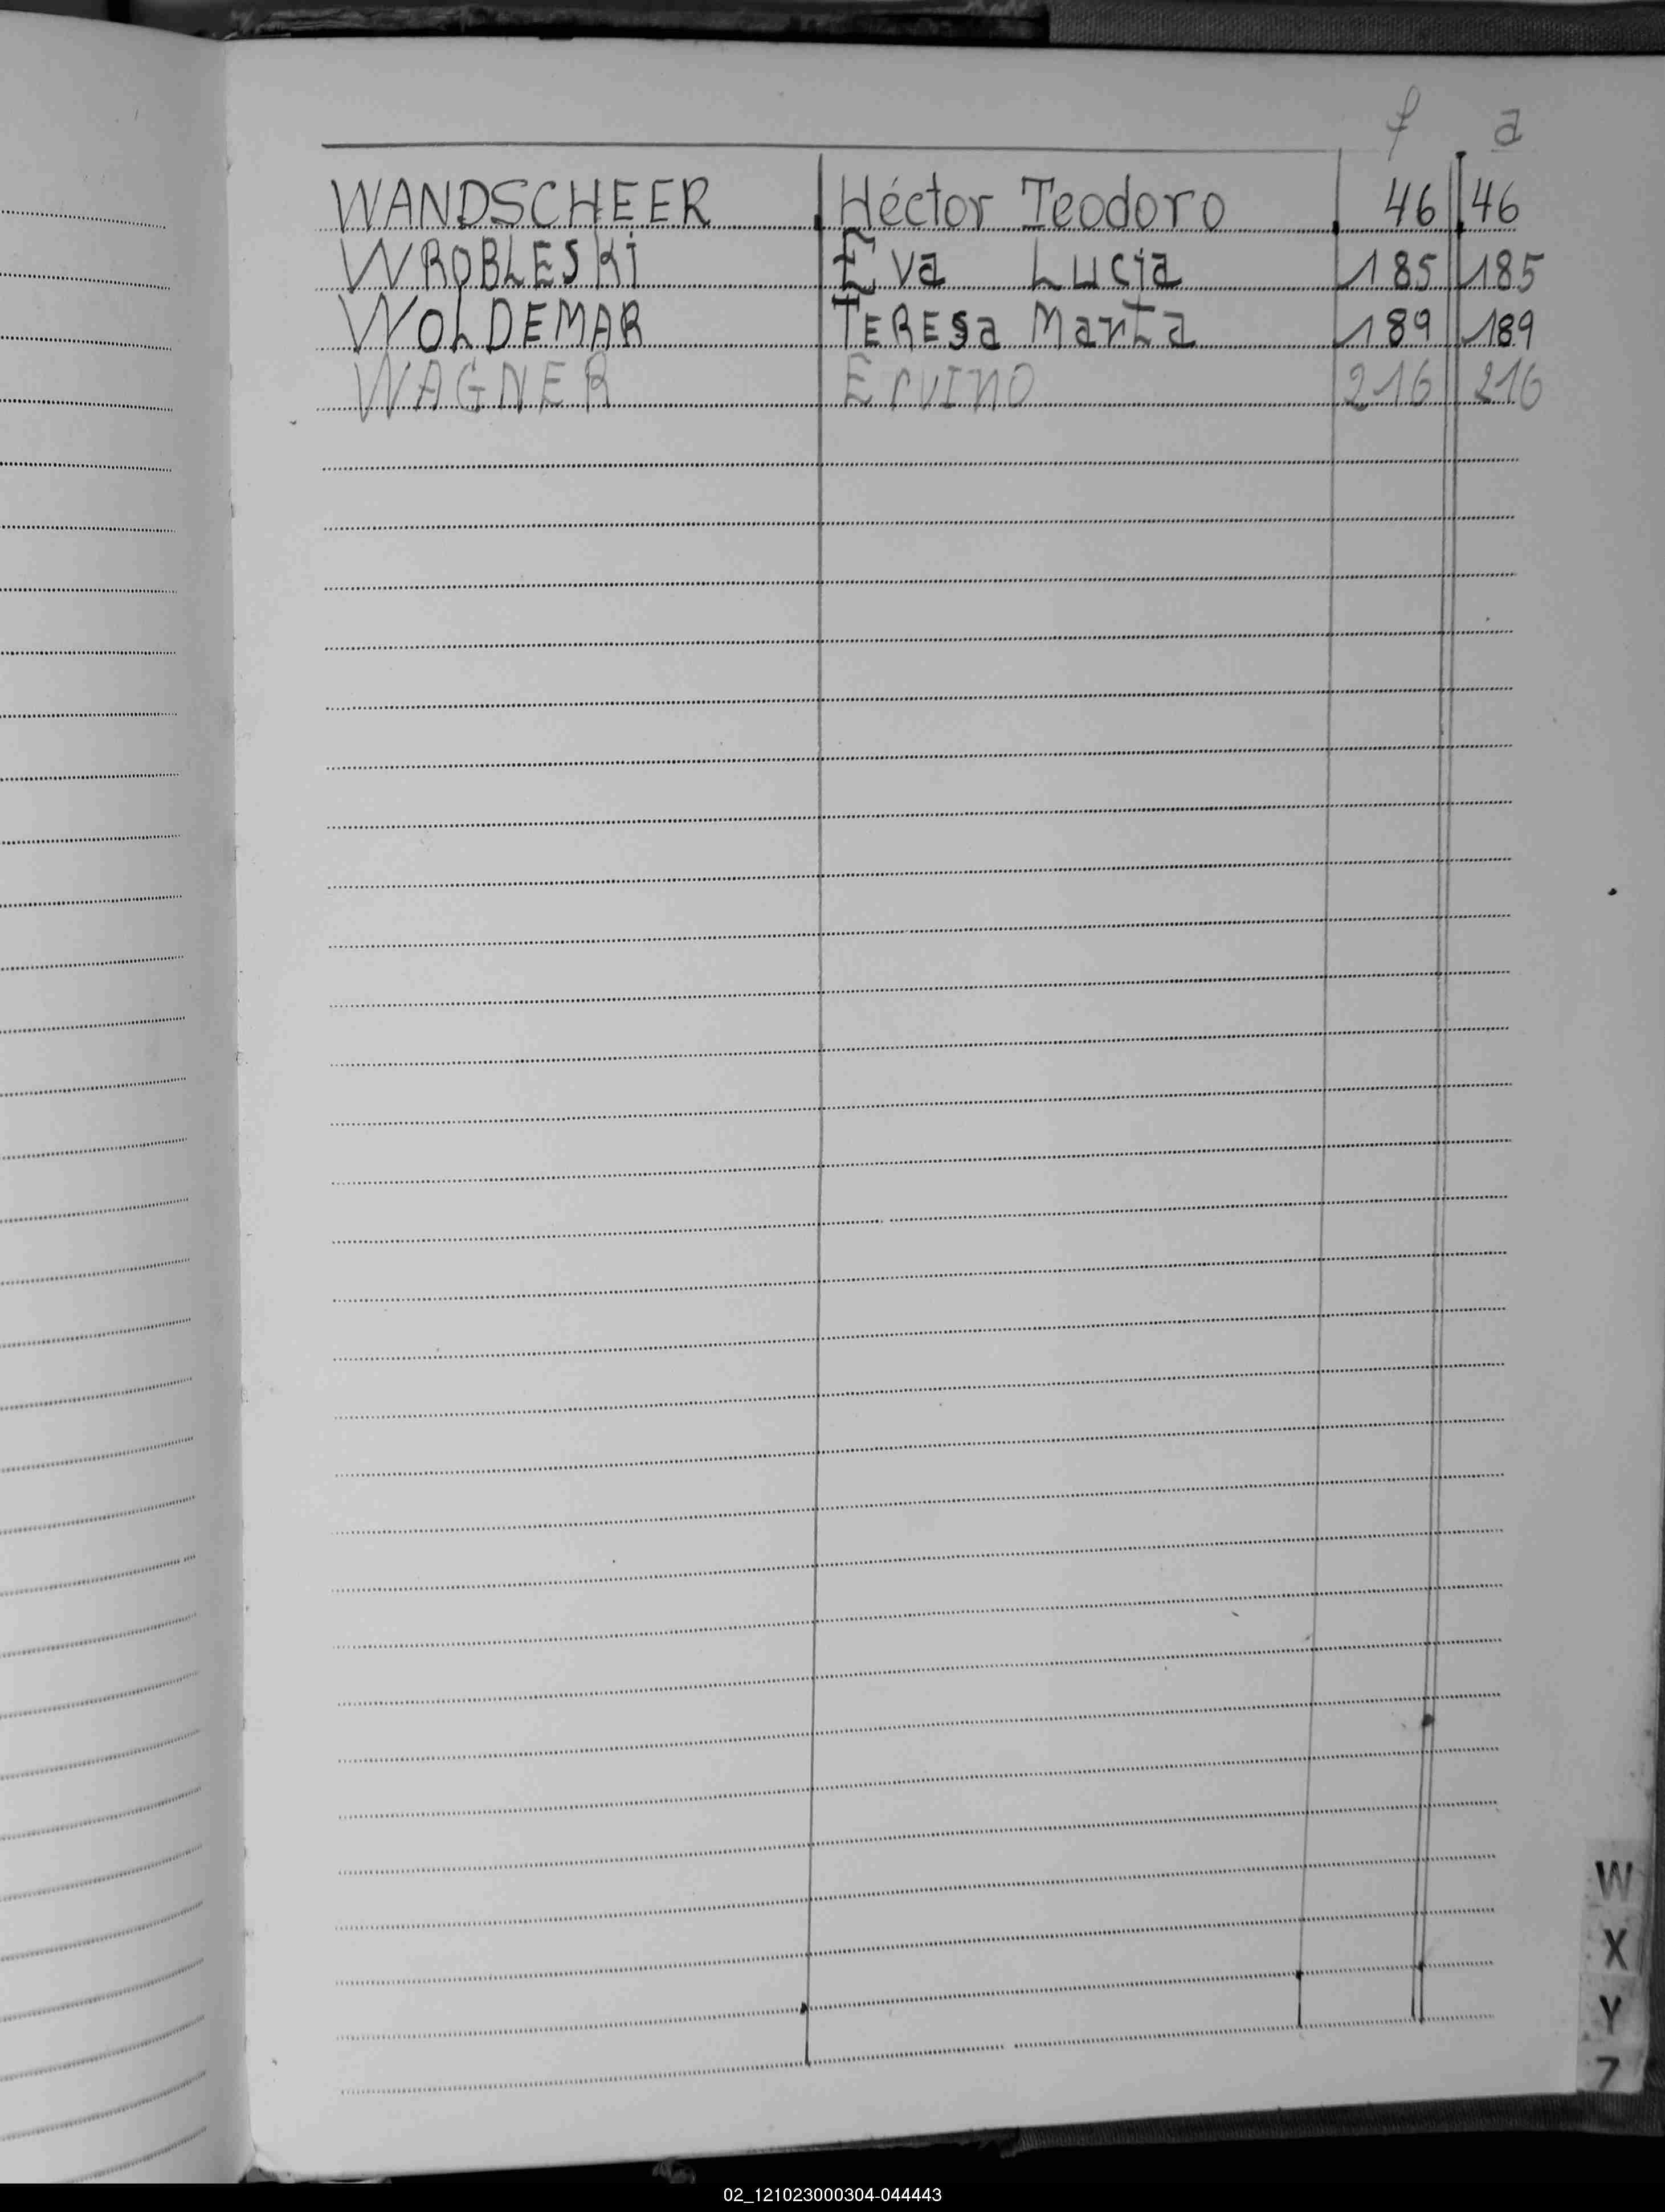 f a
WANDSCHEER Héctor Teodoro 46 46
WROBLESKi Eva Lucia 185 185
WOLDEMAR TERESa Marta 189 189
WAGNER Ervino 216 216
W
X
Y
Z
02_121023000304-044443